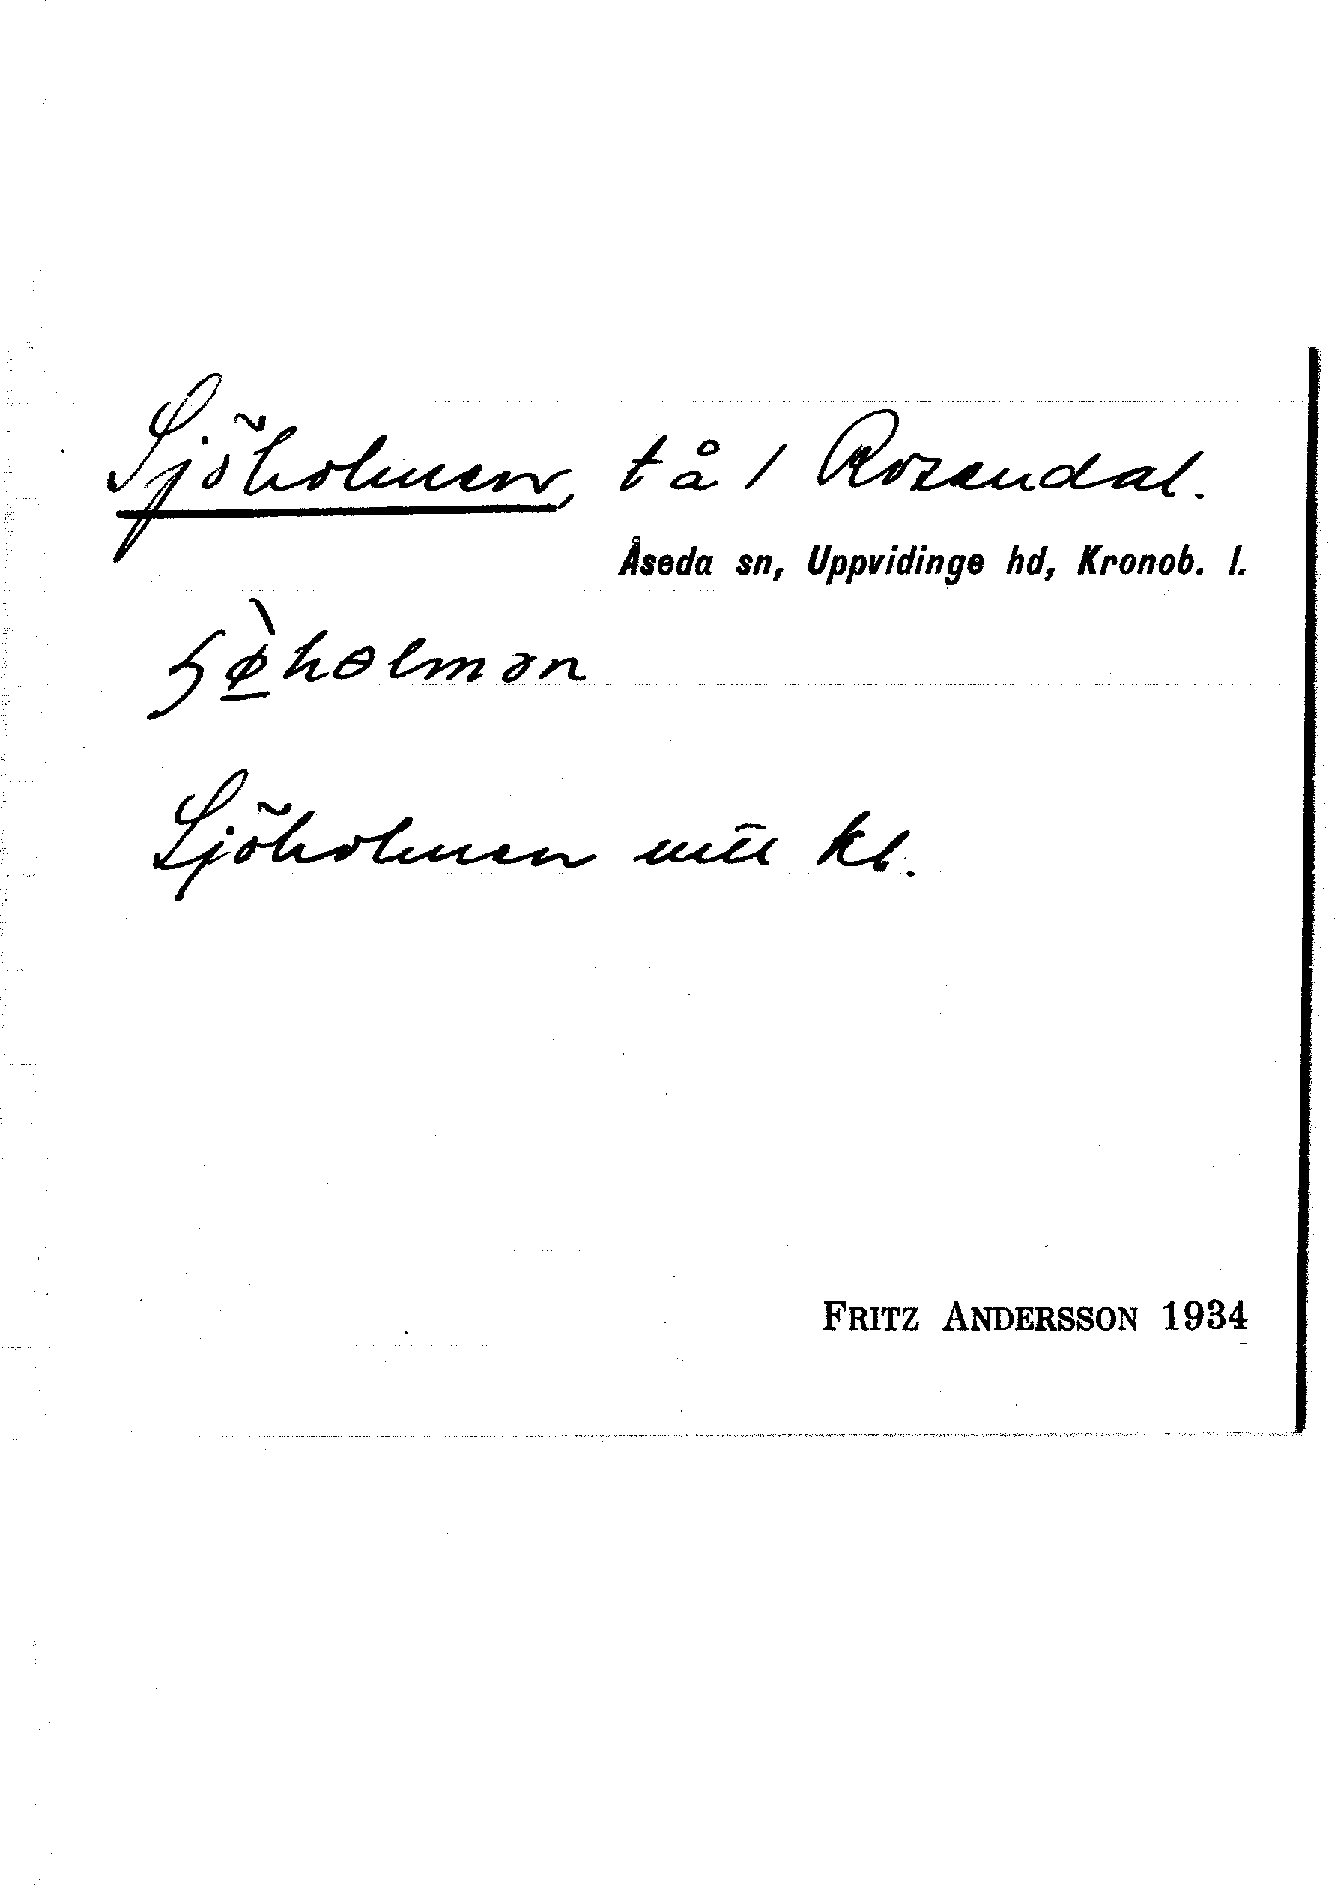 Sjöholmen, tå / Rosendal.
Åseda sn, Uppvidinge hd, Kronob. l.
ɧø̀hɵlmən
Sjöholmen kl.
FRITZ ANDERSSON 1934